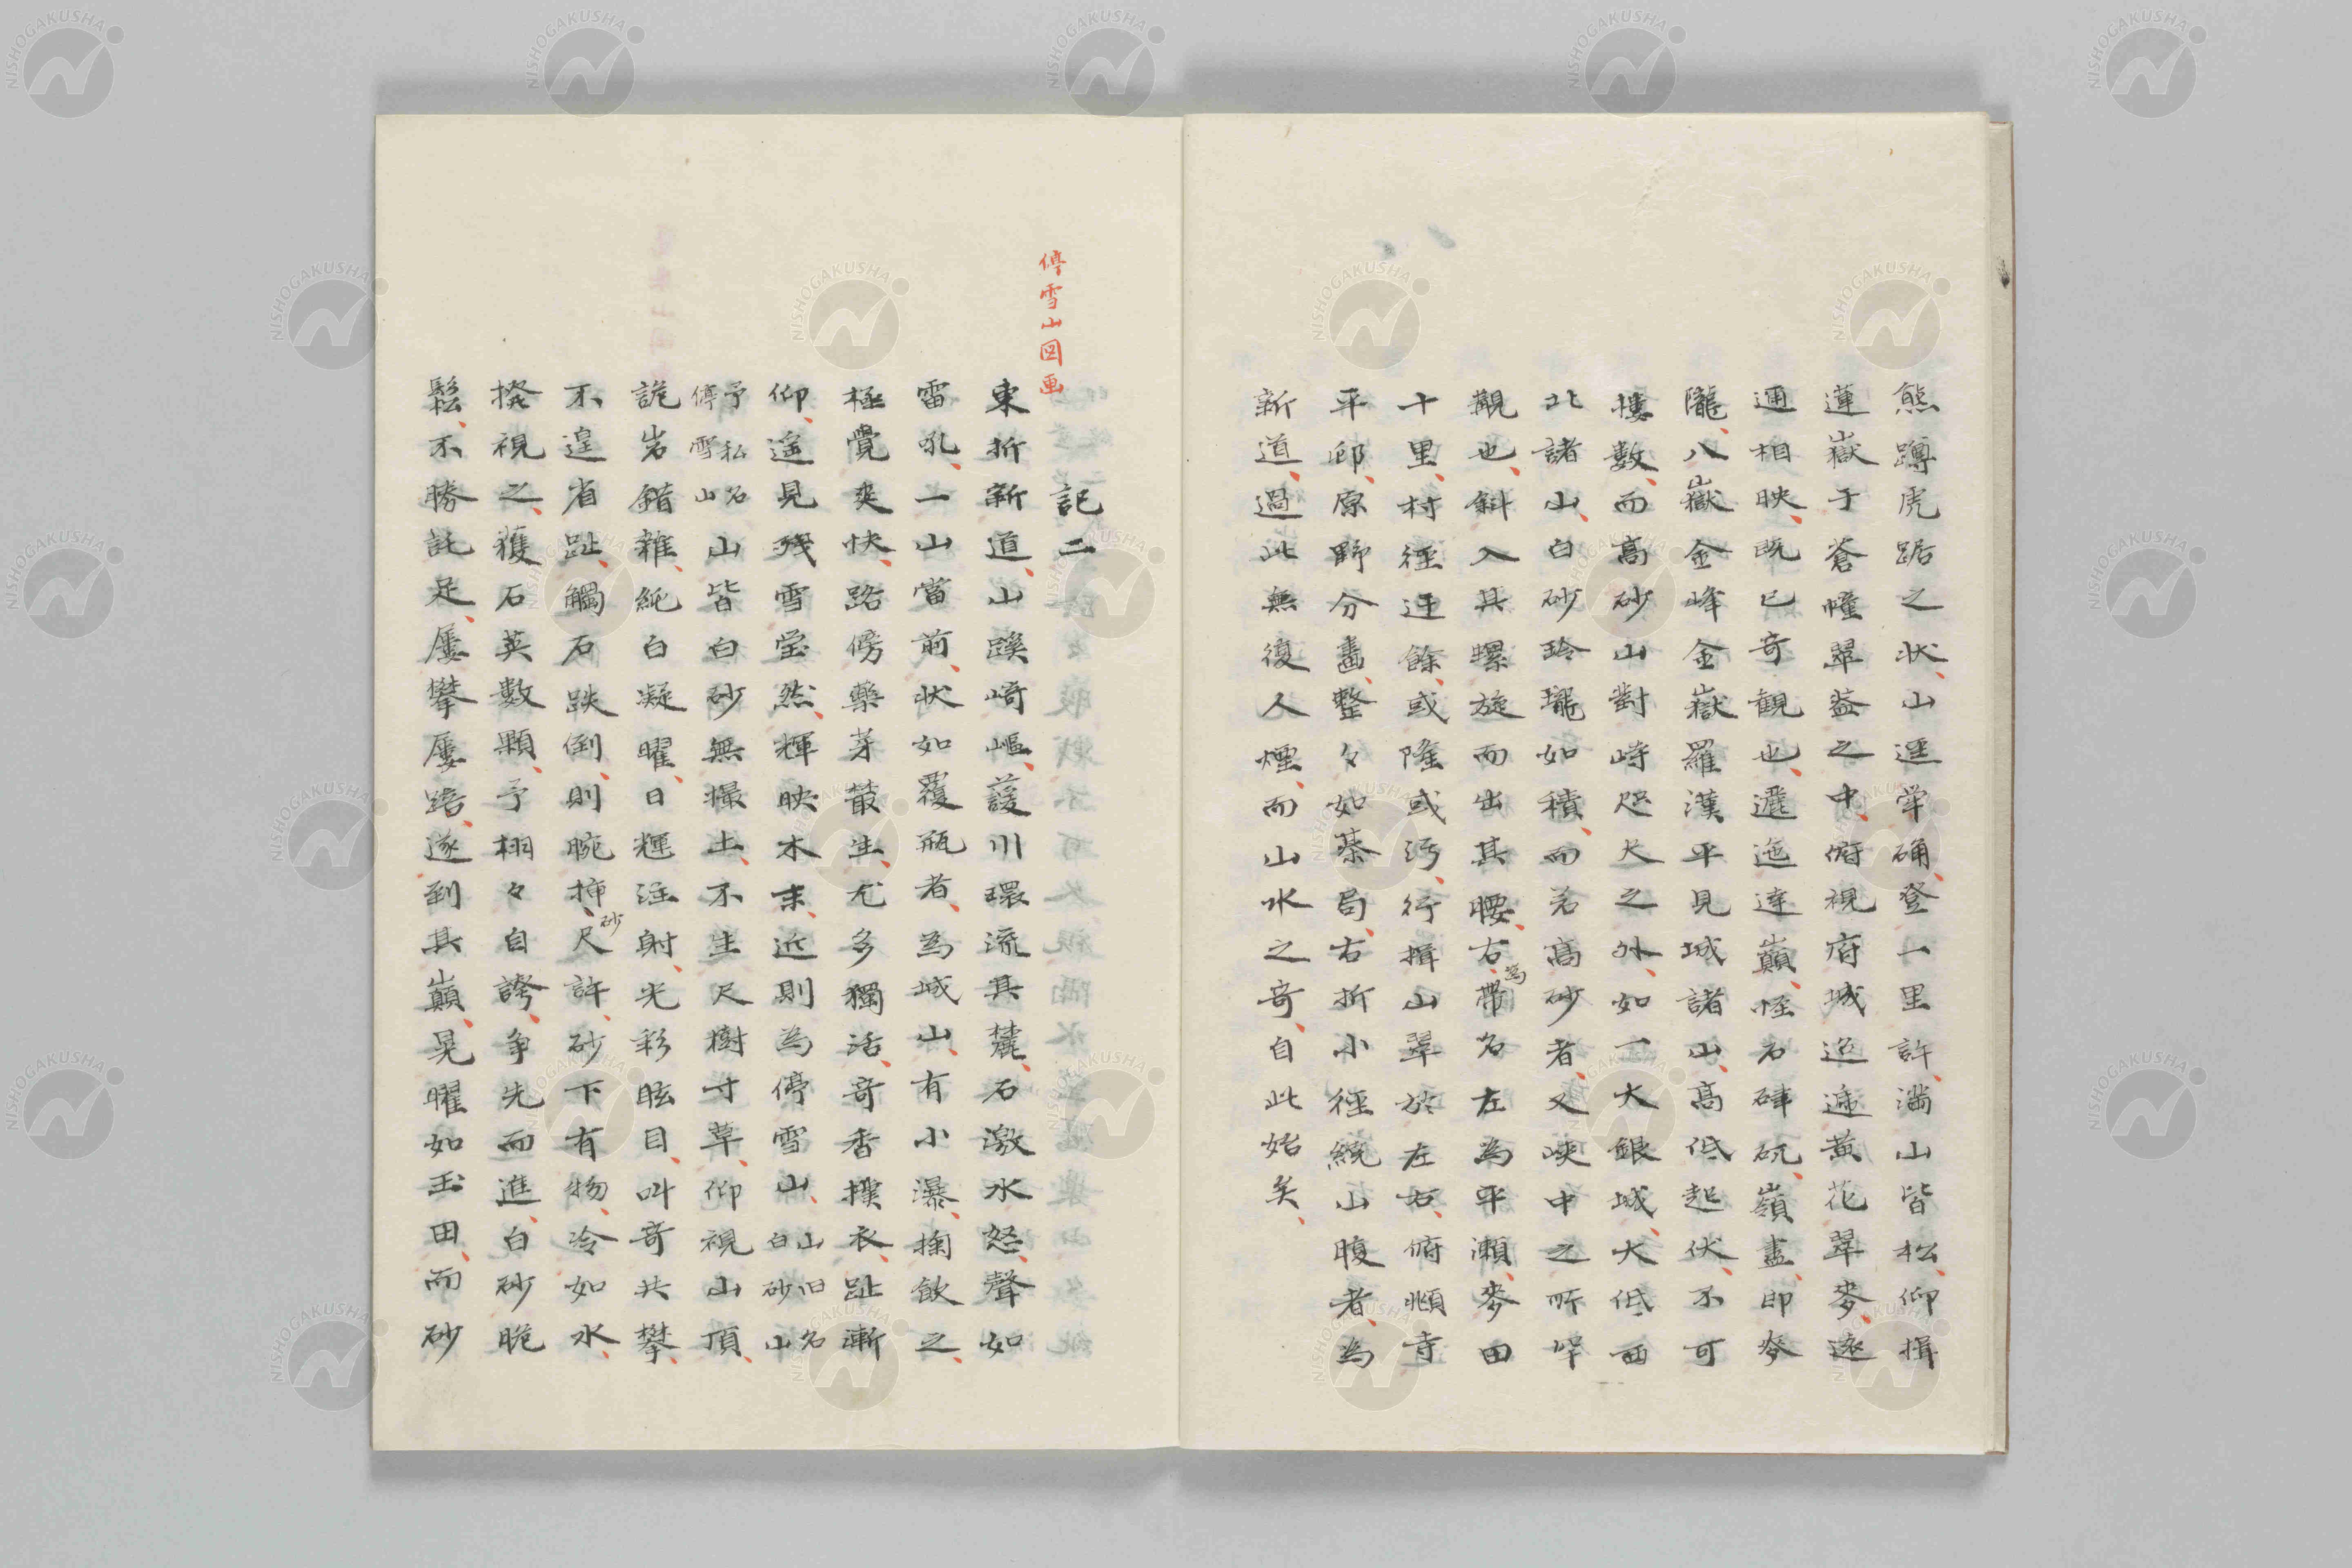 熊蹲虎踞之状、山逕犖确、登一里許、満山皆松、仰揖
蓮嶽于蒼幢翠葢之中、俯視府城迢逓黄花翠麥、遠
迩相映、既已奇観也、邐迤達巓、怪石硉矹、嶺盡、即峑
隴、八嶽金峰金嶽羅漢平見城諸山、高低起伏、不可
摟數、而高砂山對峙咫尺之外、如一大銀城、大低西
北諸山、白砂玲瓏如積、而若高砂者、又峡中之所罕
觀也、斜入其螺旋而出其腰、右為帶名、左為平瀬、麥田
十里、村徑迂餘、或隆或污、行揖山翠於左右、俯瞰寺
平邸、原野分畫、整々如棊局、右折小徑繞山腹者、為
新道、過此無復人煙、而山水之奇、自此始矣、
停雪山図画
記二
東折新道、山蹊崎嶇、護川環流其麓、石激水怒、聲如
雷吼、一山當前、状如覆瓶者、為城山、有小瀑、掬飲之、
極覺爽快、路傍藥芽叢生、尤多獨活、奇香撲衣、趾漸
仰、遥見残雪瑩然、輝映木末、近則為停雪山、山旧名白砂山
予私名停雪山山皆白砂無撮土、不生尺樹寸草、仰視山頂、
詭岩錯雜、純白凝曜、日輝注射、光彩眩目、叫奇共攀、
不遑省趾、觸石跌倒、則腕挿砂尺許、砂下有物、冷如水、
撥視之、獲石英數顆、予栩々自誇、争先而進、白砂脆
鬆、不勝託足、屡攀屡踣、遂到其巓、晃曜如玉田、而砂